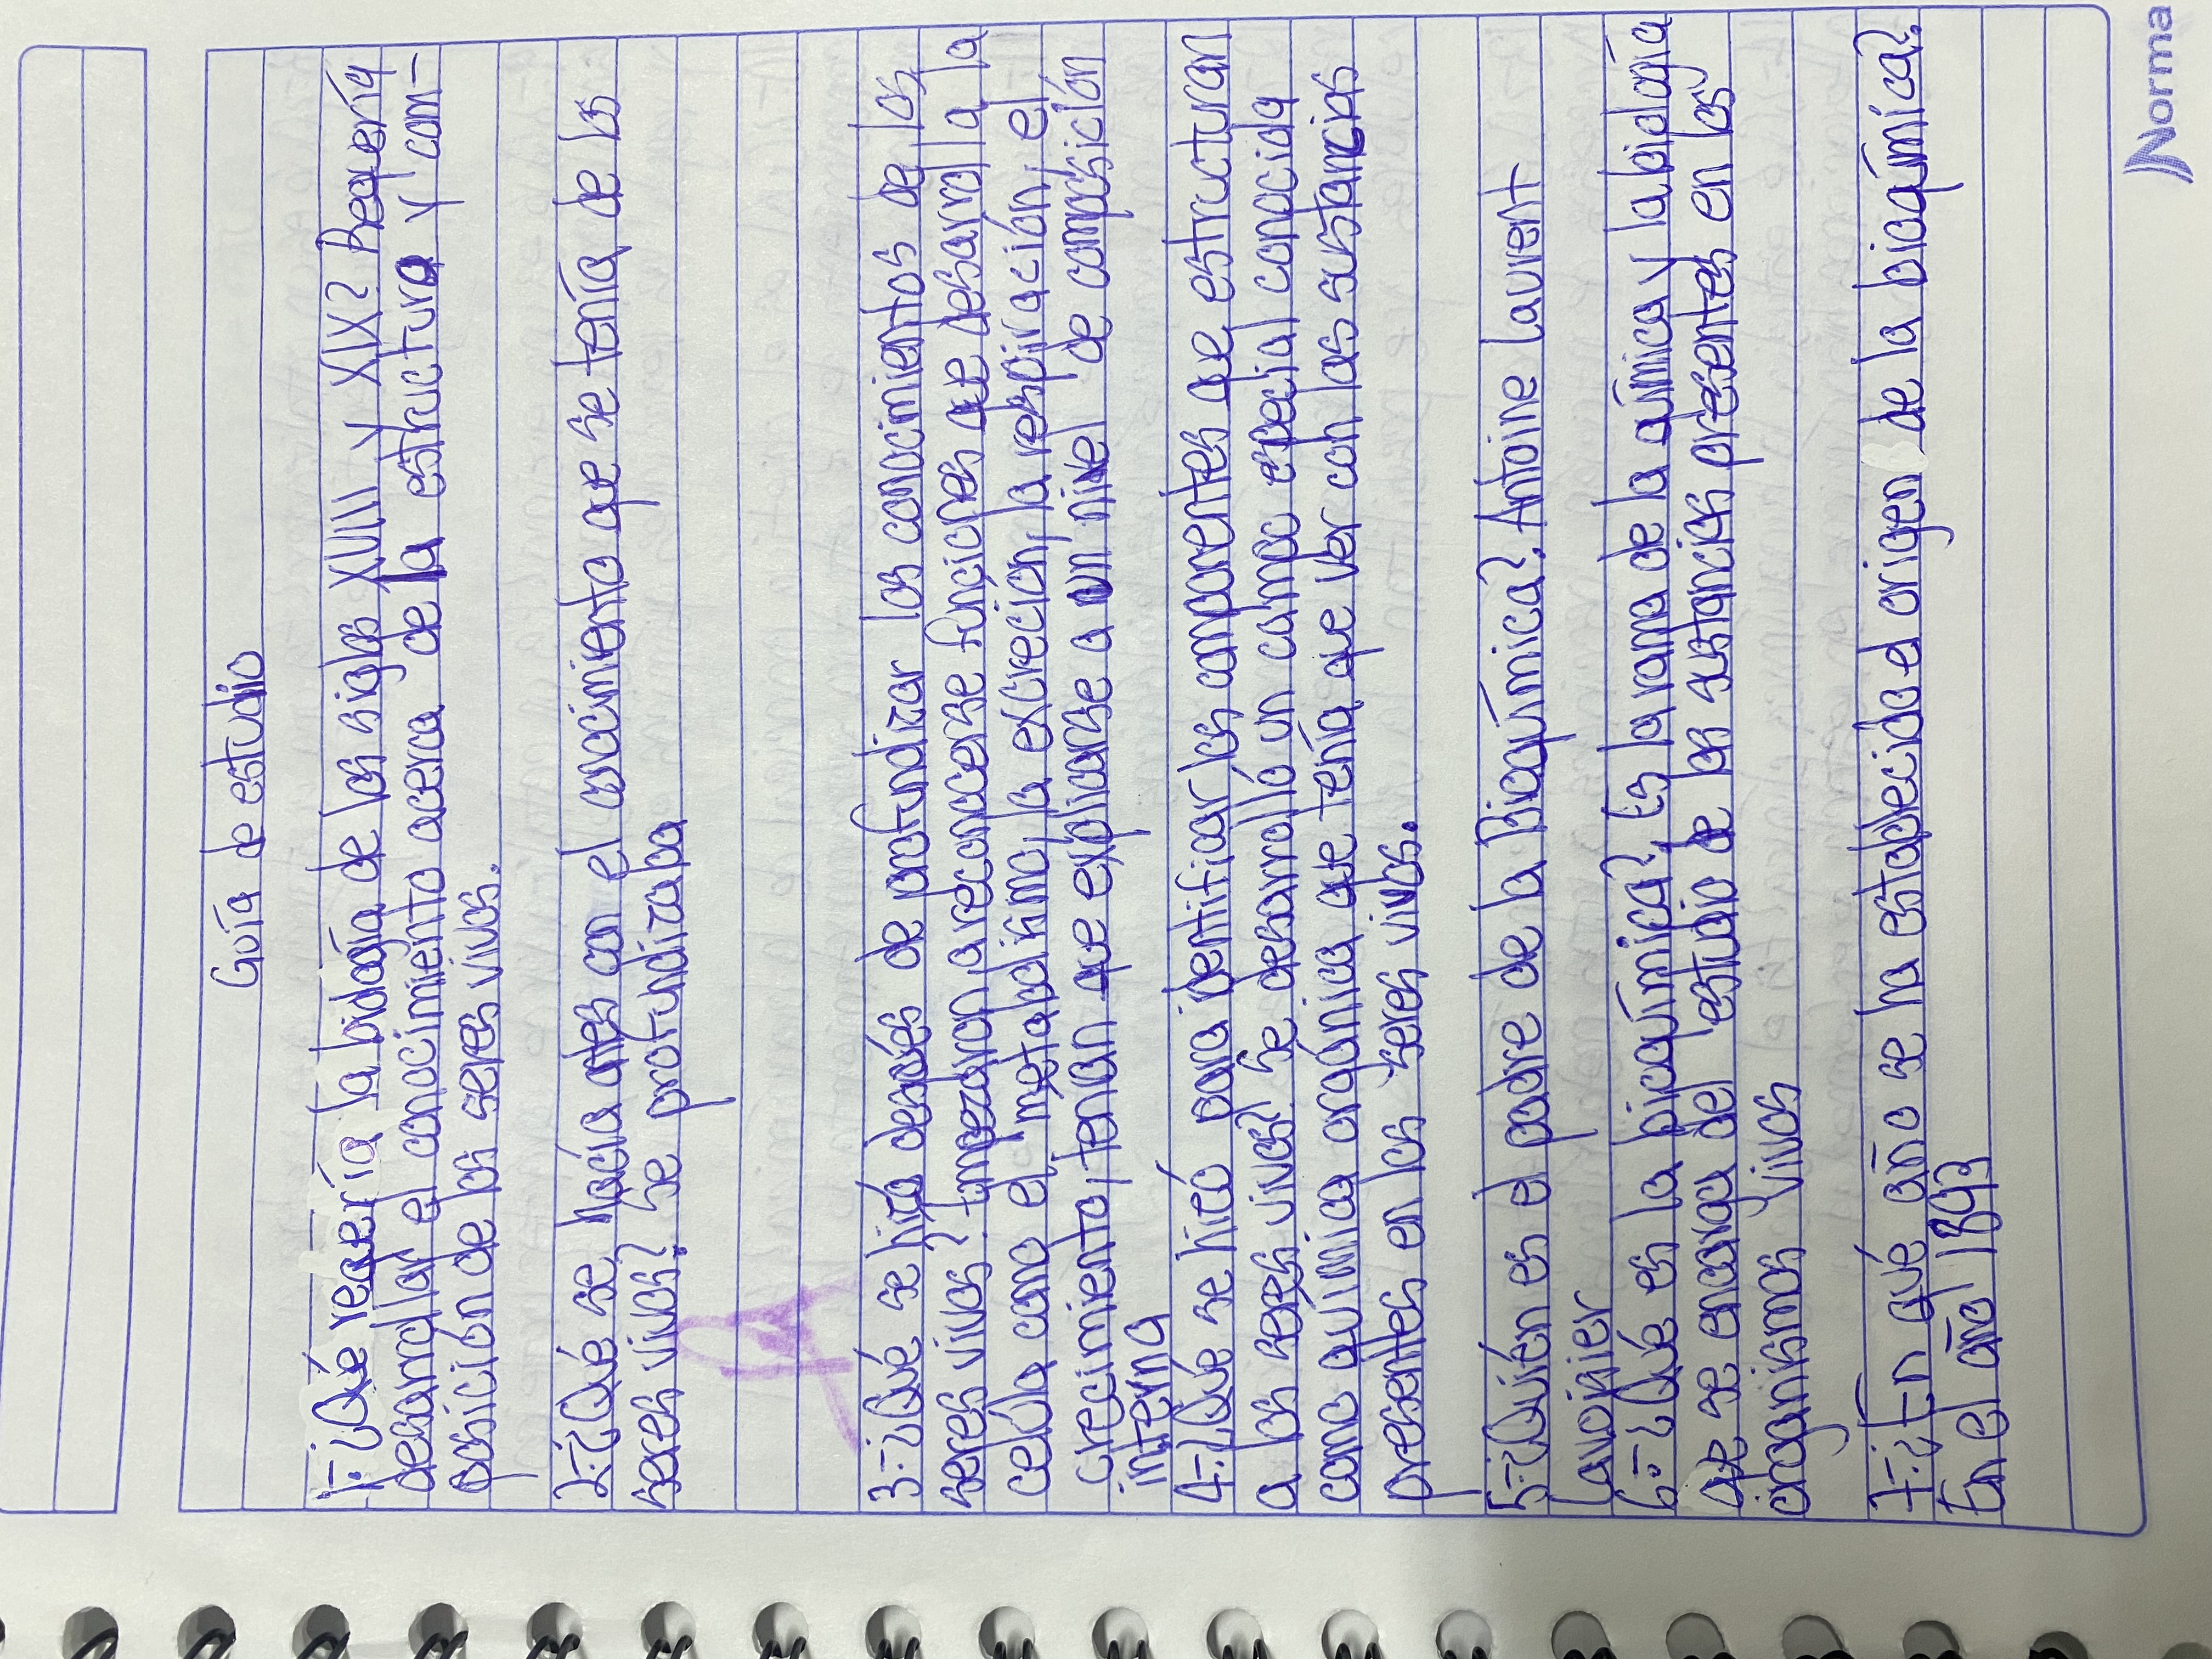 Guía de estudio
1-.¿Qué requería la biología de los siglos XVIII y XIX? Requería
desarrollar el conocimiento acerca de la estructura y com-
posición de los seres vivos.
2-.¿Qué se hacía antes con el conocimiento que se tenía de los
seres vivos? Se profundizaba
3-.¿Qué se hizó después de profundizar los conocimientos de los
seres vivos? Empezaron a reconocerse funciones que desarrolla la
celúla como el metabolismo, la excreción, la respiración, el
crecimiento, tenían que explicarse a un nivel de composición
interna
4-.¿Qué se hizó para identificar los componentes que estructuran
a los seres vivos? Se desarrolló un campo especial conocida
como química orgánica que tenía que ver con las sustancias
presentes en los seres vivos.
5-.¿Quién es el padre de la Bioquímica?. Antoine Laurent
Lavoisier
6.-¿Qué es la bioquímica?. Es la rama de la química y la biología
que se encarga del estudio de las sustancias presentes en los
organismos vivos
7-.¿En qué año se ha establecido el origen de la bioquímica?.
En el año 1893
Norma